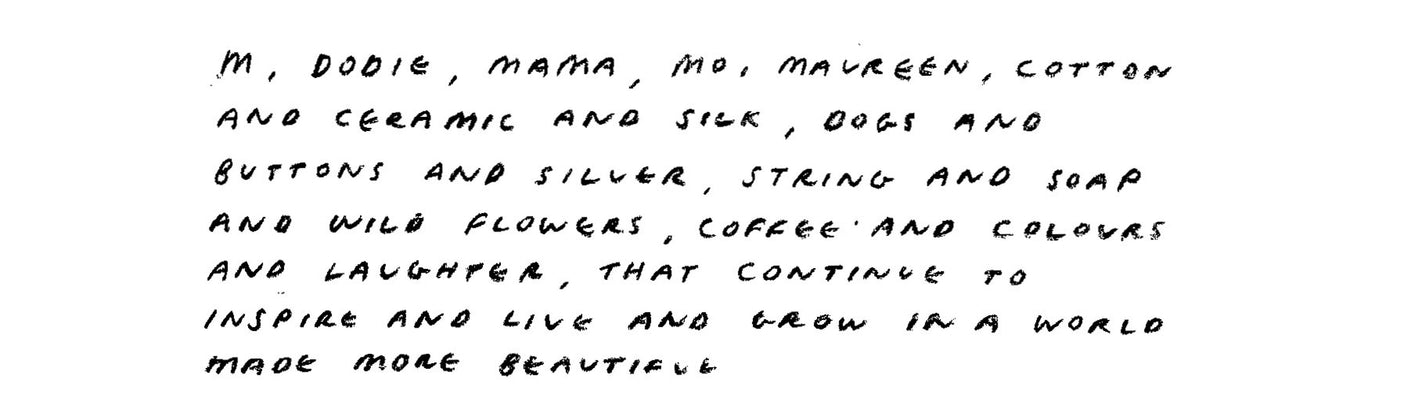 M, DODIE, MAMA, MO, MAUREEN, COTTON
AND CERAMIC AND SILK, DOGS AND
BUTTONS AND SILVER, STRING AND SOAP
AND WILD FLOWERS, COFFEE AND COLOURS
AND LAUGHTER, THAT CONTINUE TO
INSPIRE AND LIVE AND GROW IN A WORLD
MADE MORE BEAUTIFUL